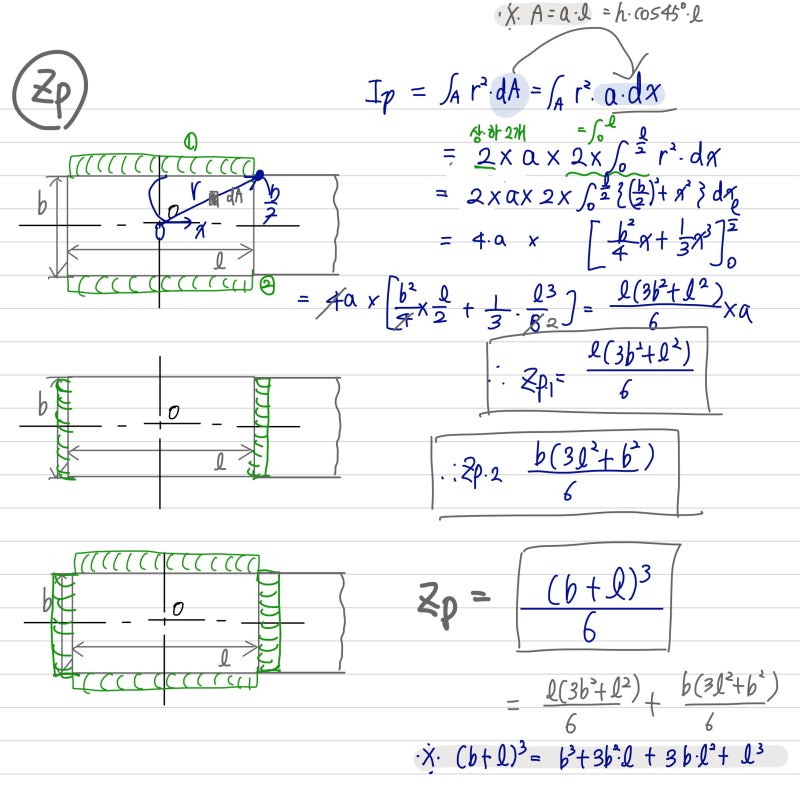 ※ A = a·l = h·cos45°·l
Zp
Ip = ∫_A r²·dA = ∫_A r²·a·dx
상·하 2개 = ∫₀^l
= 2 × a × 2 × ∫₀^(l/2) r²·dx
= 2 × a × 2 × ∫₀^(l/2) {(b/2)² + x²} dx
= 4·a × [b²/4 x + 1/3 x³]₀^(l/2)
= 4a × [b²/4 × l/2 + 1/3 · l³/8 2] = l(3b²+l²)/6 × a
① b r dA b/2 O O x l ②
∴ Zp₁ = l(3b²+l²)/6
b O l
∴ Zp·2 b(3l²+b²)/6
b O l
Zp = (b+l)³/6
= l(3b²+l²)/6 + b(3l²+b²)/6
※ (b+l)³ = b³+3b²·l + 3b·l² + l³